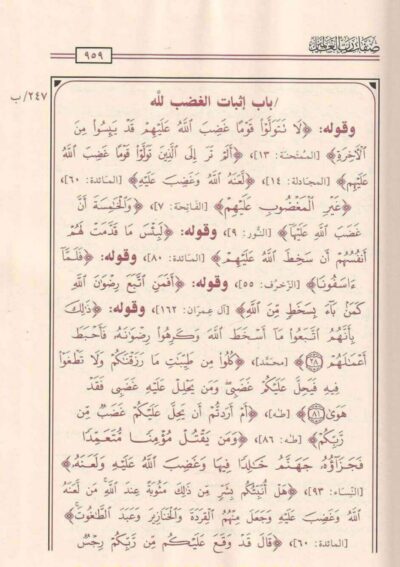 صفات رب العالمين
٩٥٩
٢٤٧/ب
/باب إثبات الغضب لله
وقوله: ﴿لَا تَتَوَلَّوْا۟ قَوْمًا غَضِبَ ٱللَّهُ عَلَيْهِمْ قَدْ يَئِسُوا۟ مِنَ
ٱلْـَٔاخِرَةِ﴾ [الممتحنة: ١٣]، ﴿أَلَمْ تَرَ إِلَى ٱلَّذِينَ تَوَلَّوْا۟ قَوْمًا غَضِبَ ٱللَّهُ
عَلَيْهِم﴾ [المجادلة: ١٤]، ﴿لَّعَنَهُ ٱللَّهُ وَغَضِبَ عَلَيْهِ﴾ [المائدة: ٦٠]،
﴿غَيْرِ ٱلْمَغْضُوبِ عَلَيْهِمْ﴾ [الفاتحة: ٧]، ﴿وَٱلْخَـٰمِسَةَ أَنَّ
غَضَبَ ٱللَّهِ عَلَيْهَآ﴾ [النور: ٩]، وقوله: ﴿لَبِئْسَ مَا قَدَّمَتْ لَهُمْ
أَنفُسُهُمْ أَن سَخِطَ ٱللَّهُ عَلَيْهِمْ﴾ [المائدة: ٨٠]، وقوله: ﴿فَلَمَّآ
ءَاسَفُونَا﴾ [الزخرف: ٥٥]، وقوله: ﴿أَفَمَنِ ٱتَّبَعَ رِضْوَٰنَ ٱللَّهِ
كَمَنۢ بَآءَ بِسَخَطٍ مِّنَ ٱللَّهِ﴾ [آل عمران: ١٦٢]، وقوله: ﴿ذَٰلِكَ
بِأَنَّهُمُ ٱتَّبَعُوا۟ مَآ أَسْخَطَ ٱللَّهَ وَكَرِهُوا۟ رِضْوَٰنَهُۥ فَأَحْبَطَ
أَعْمَـٰلَهُمْ ٢٨﴾ [محمد]، ﴿كُلُوا۟ مِن طَيِّبَـٰتِ مَا رَزَقْنَـٰكُمْ وَلَا تَطْغَوْا۟
فِيهِ فَيَحِلَّ عَلَيْكُمْ غَضَبِى وَمَن يَحْلِلْ عَلَيْهِ غَضَبِى فَقَدْ
هَوَىٰ ٨١﴾ [طه]، ﴿أَمْ أَرَدتُّمْ أَن يَحِلَّ عَلَيْكُمْ غَضَبٌ مِّن
رَّبِّكُمْ﴾ [طه: ٨٦]، ﴿وَمَن يَقْتُلْ مُؤْمِنًا مُّتَعَمِّدًا
فَجَزَآؤُهُۥ جَهَنَّمُ خَـٰلِدًا فِيهَا وَغَضِبَ ٱللَّهُ عَلَيْهِ وَلَعَنَهُۥ﴾
[النساء: ٩٣]، ﴿هَلْ أُنَبِّئُكُم بِشَرٍّ مِّن ذَٰلِكَ مَثُوبَةً عِندَ ٱللَّهِ مَن لَّعَنَهُ
ٱللَّهُ وَغَضِبَ عَلَيْهِ وَجَعَلَ مِنْهُمُ ٱلْقِرَدَةَ وَٱلْخَنَازِيرَ وَعَبَدَ ٱلطَّـٰغُوتَ﴾
[المائدة: ٦٠]، ﴿قَالَ قَدْ وَقَعَ عَلَيْكُم مِّن رَّبِّكُمْ رِجْسٌ